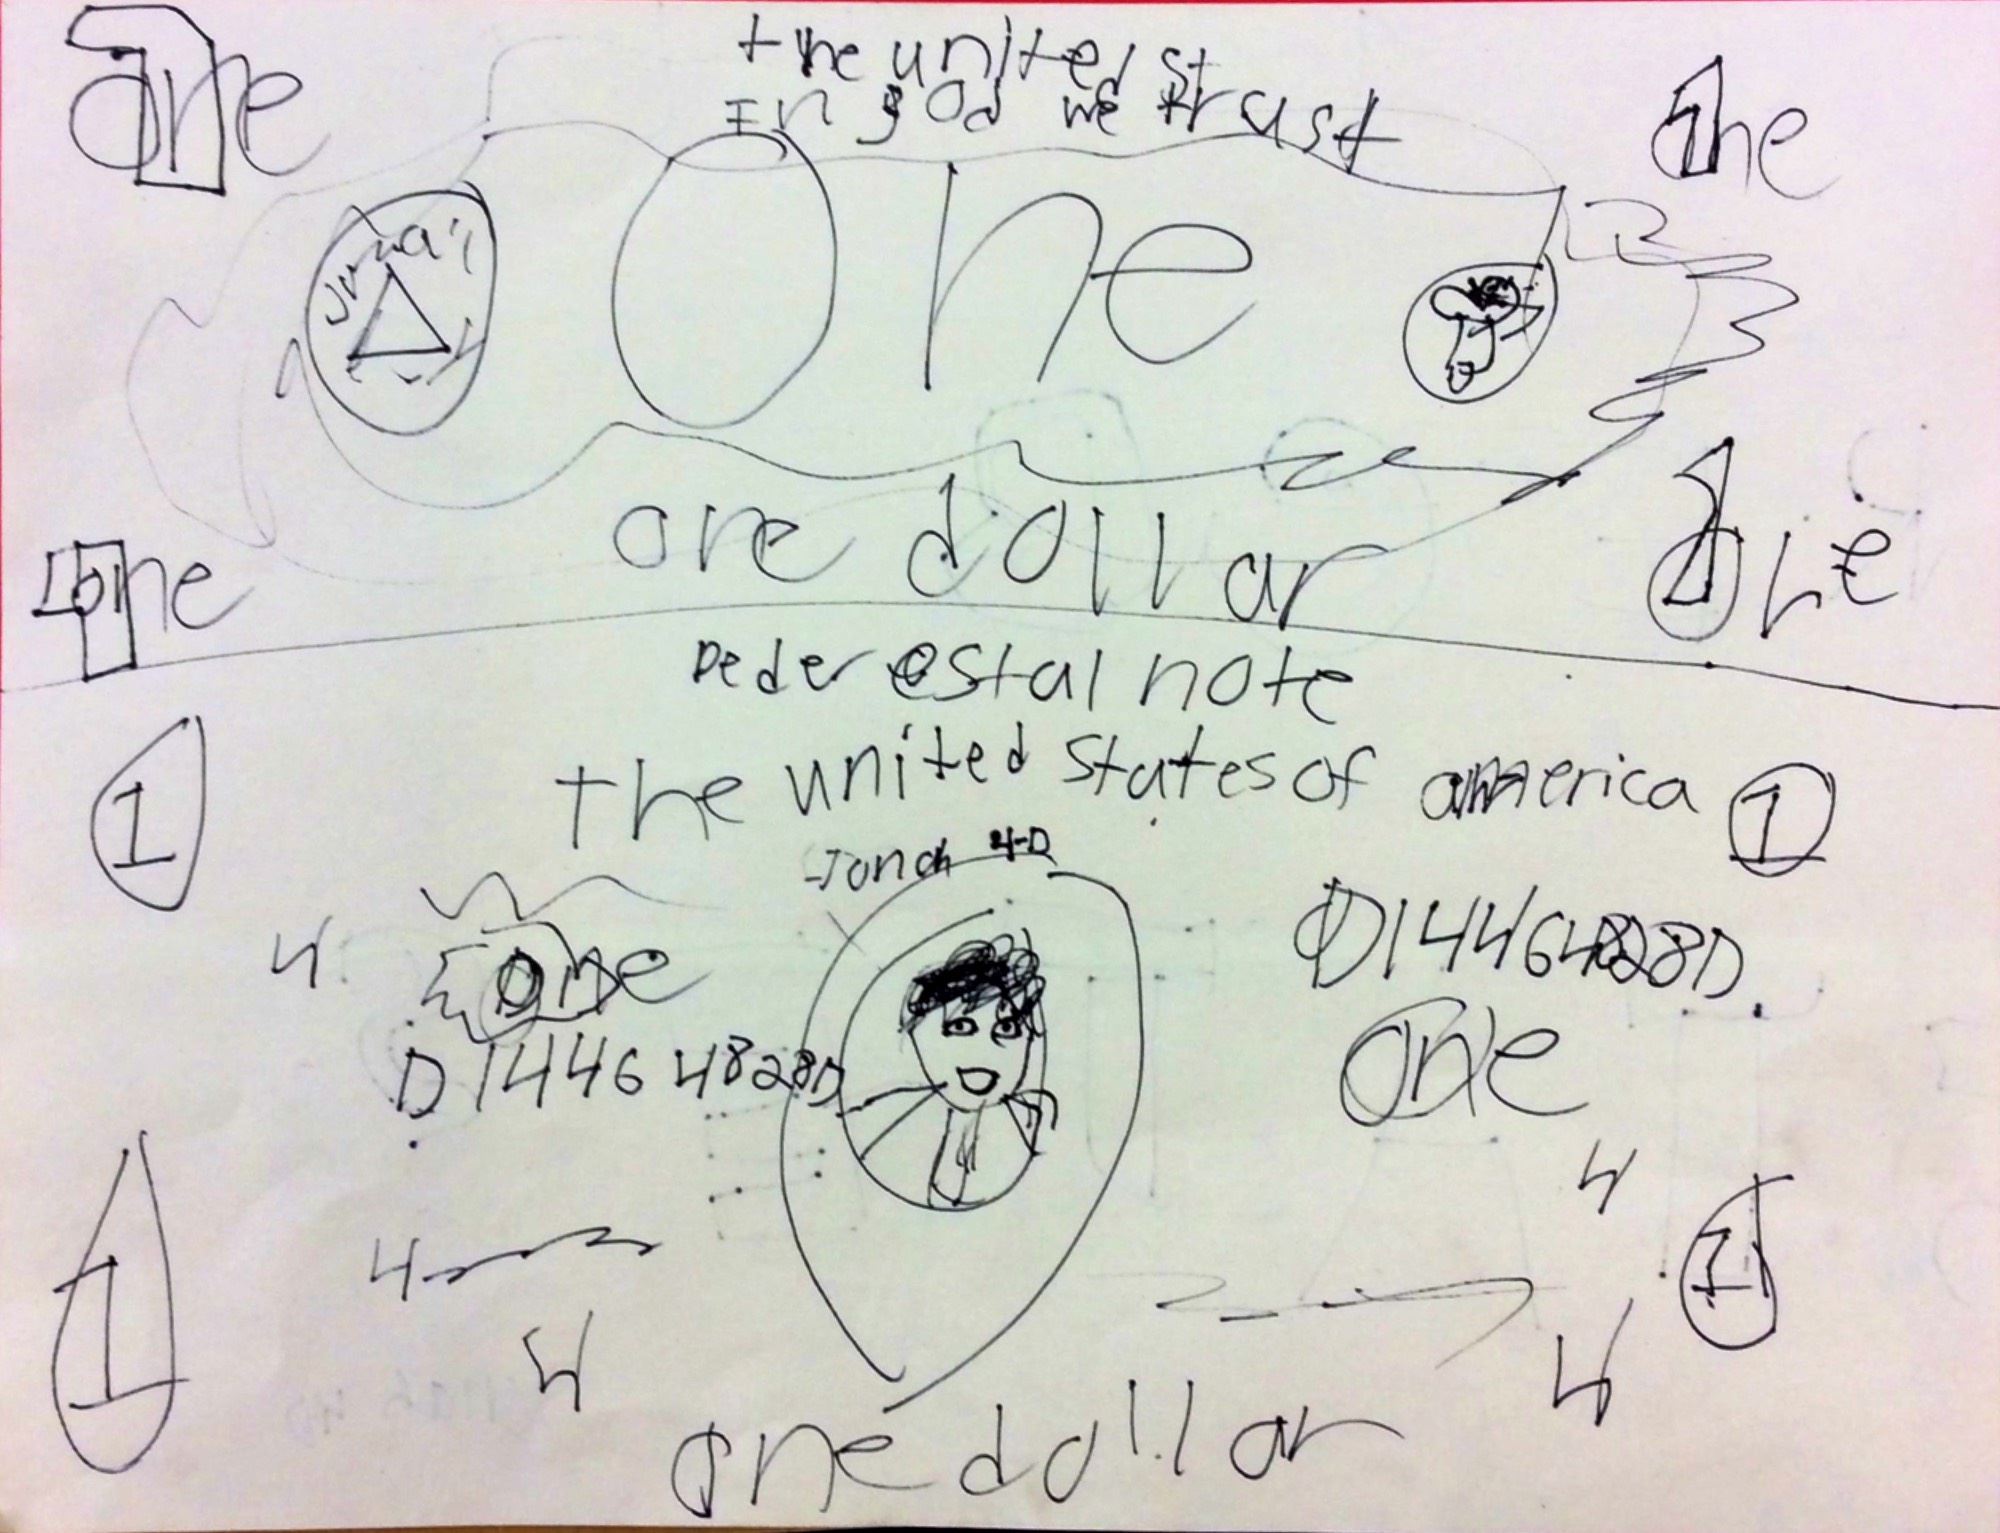 the united st
one
In god we trust
one
One
one dollar
one
one
Deder estal note
the united states of america
1
1
Jonah 4-D
4
one
D14464828D
D14464828D
one
4
1
4
1
4
4
one dollar